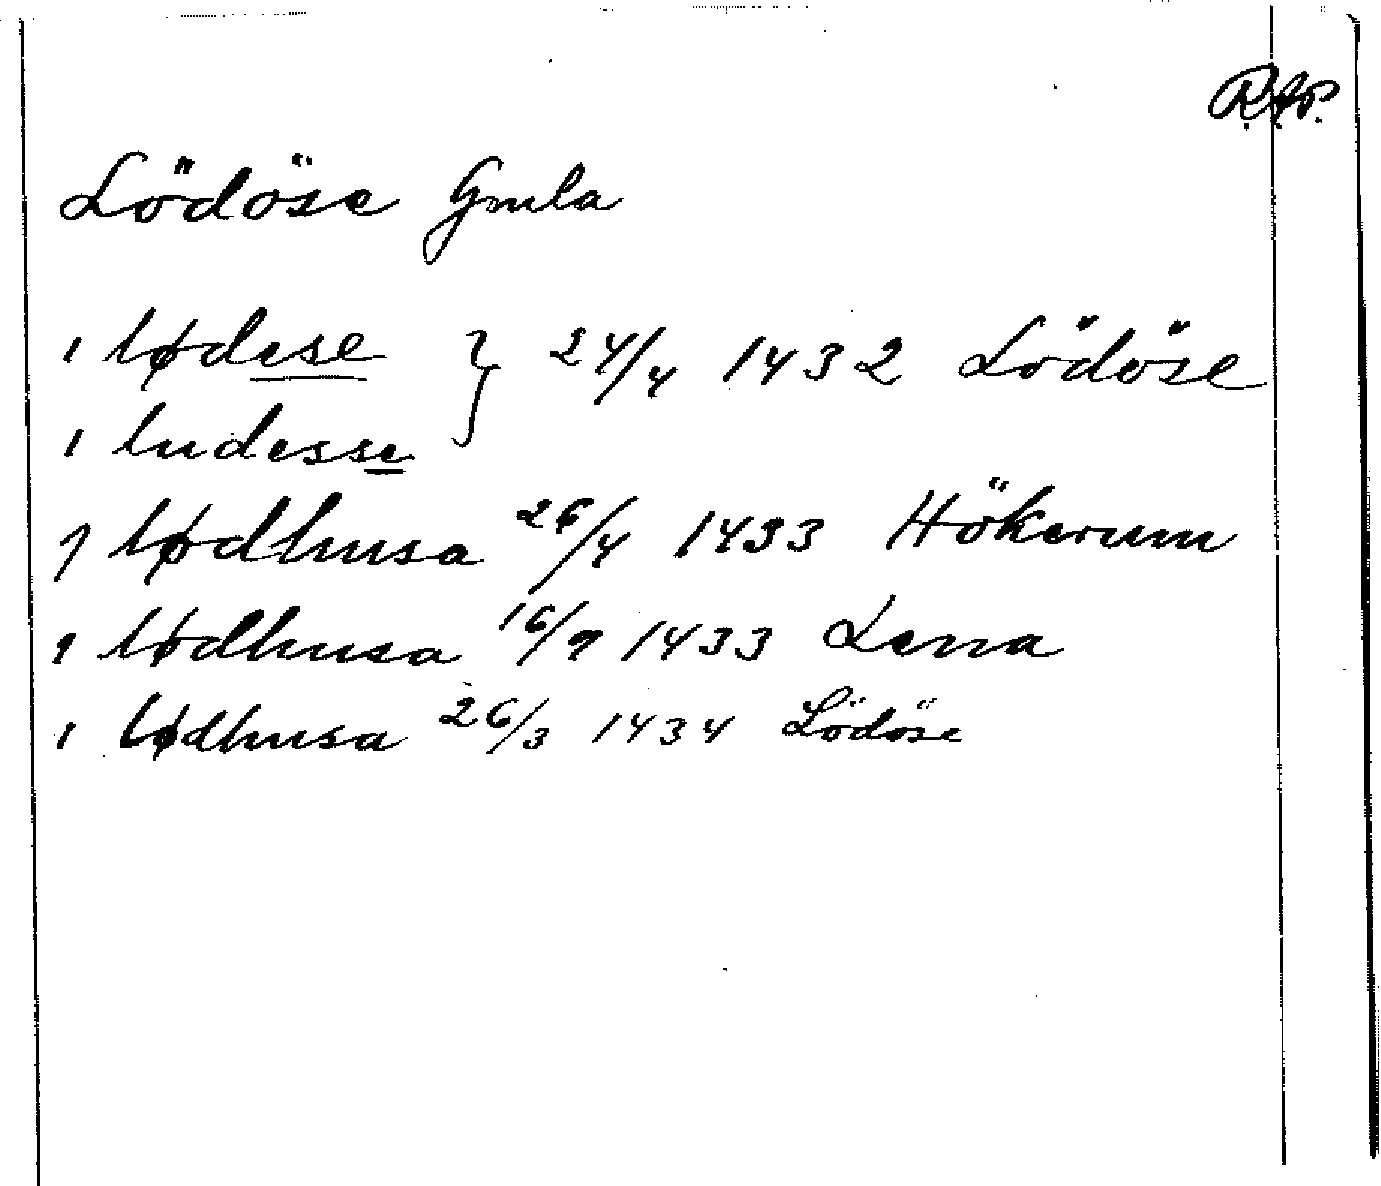 R.A.P.
Lödöse Gmla
i lødese } 24/4 1432 Lödöse
i ludesse
j lødhusa 26/4 1433 Hökerum
i lødhusa 16/9 1433 Lena
i lødhusa 26/3 1434 Lödöse